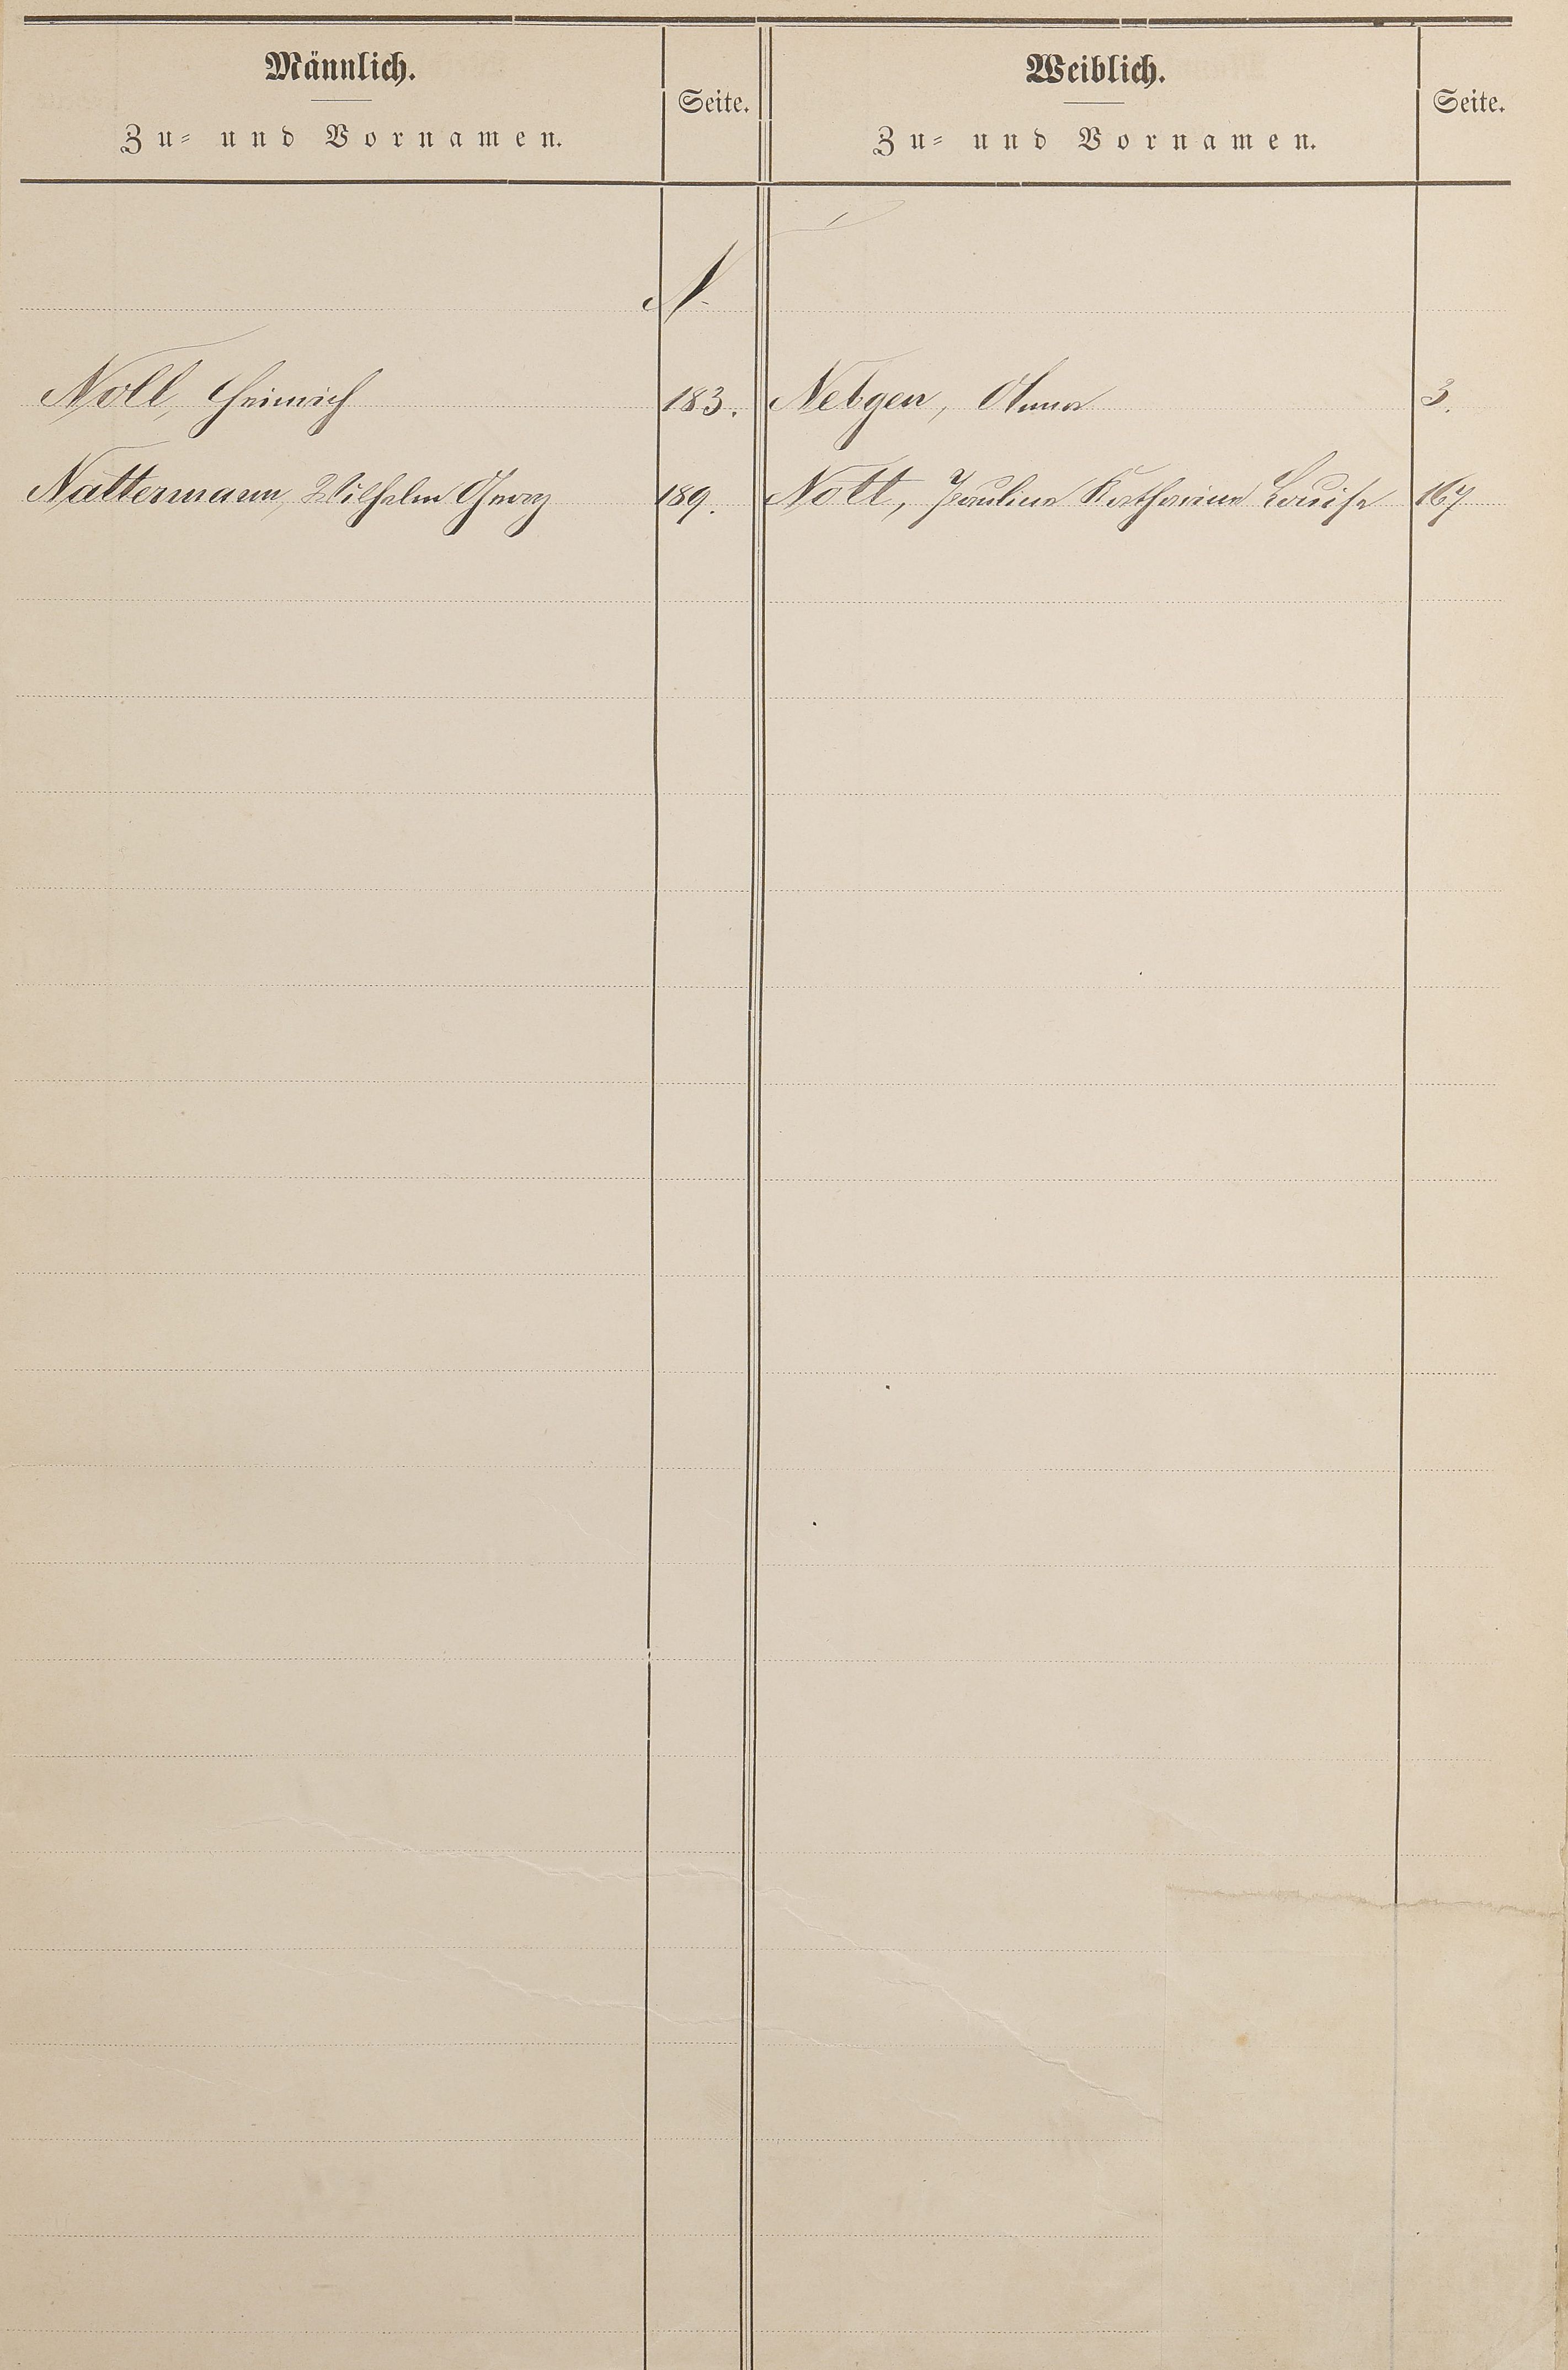 Männlich.
Zu- und Vornamen.
Seite.
Weiblich.
Zu- und Vornamen.
Seite.
N.
Noll, Heinrich 183. Nebgen, Anna 3.
Nattermann, Wilhelm Georg 189. Nott, Pauline Katharine Louise 167